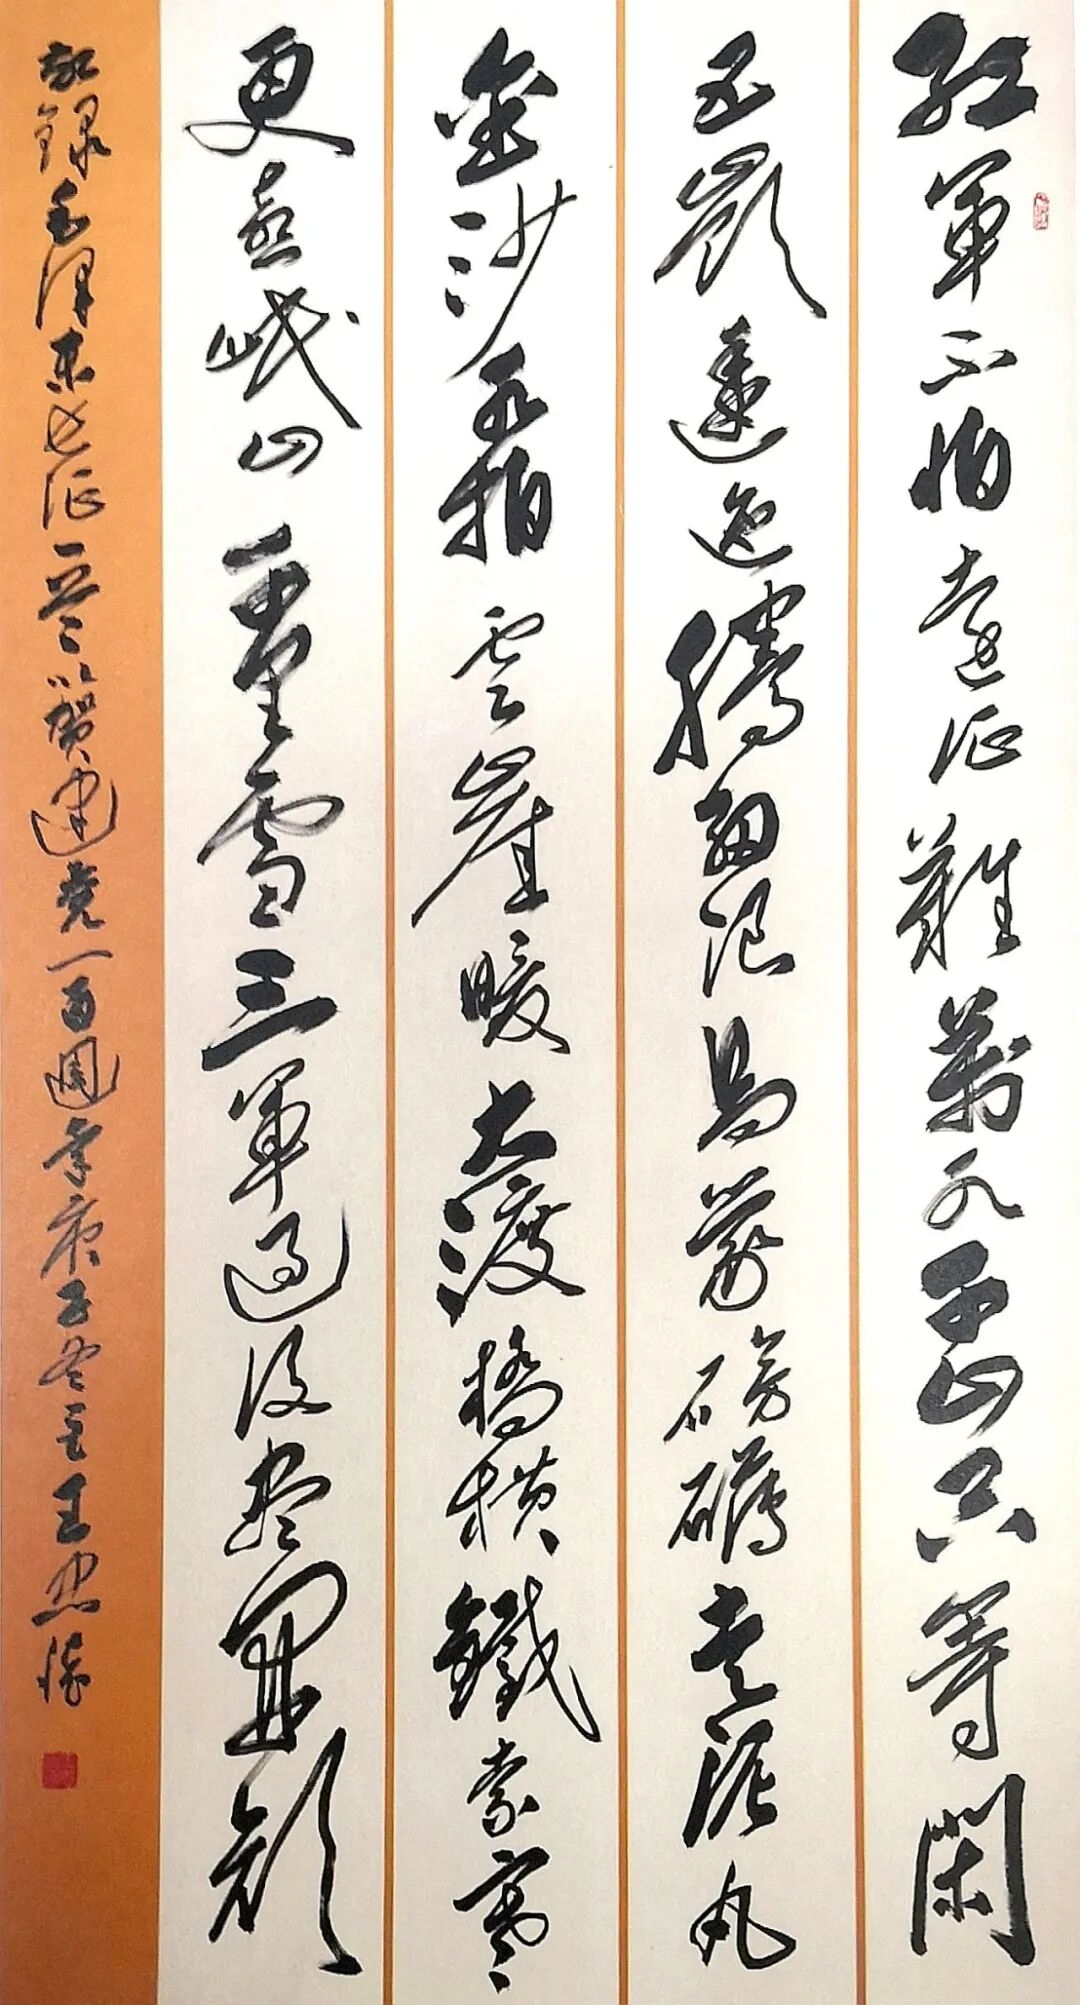 紅軍不怕遠征難萬水千山只等閑
五嶺逶迤騰細浪烏蒙磅礴走泥丸
金沙水拍雲崖暖大渡橋橫鐵索寒
更喜岷山千里雪三軍過後盡開顏
敬錄毛澤東長征一首以賀建党一百週年庚子冬至王